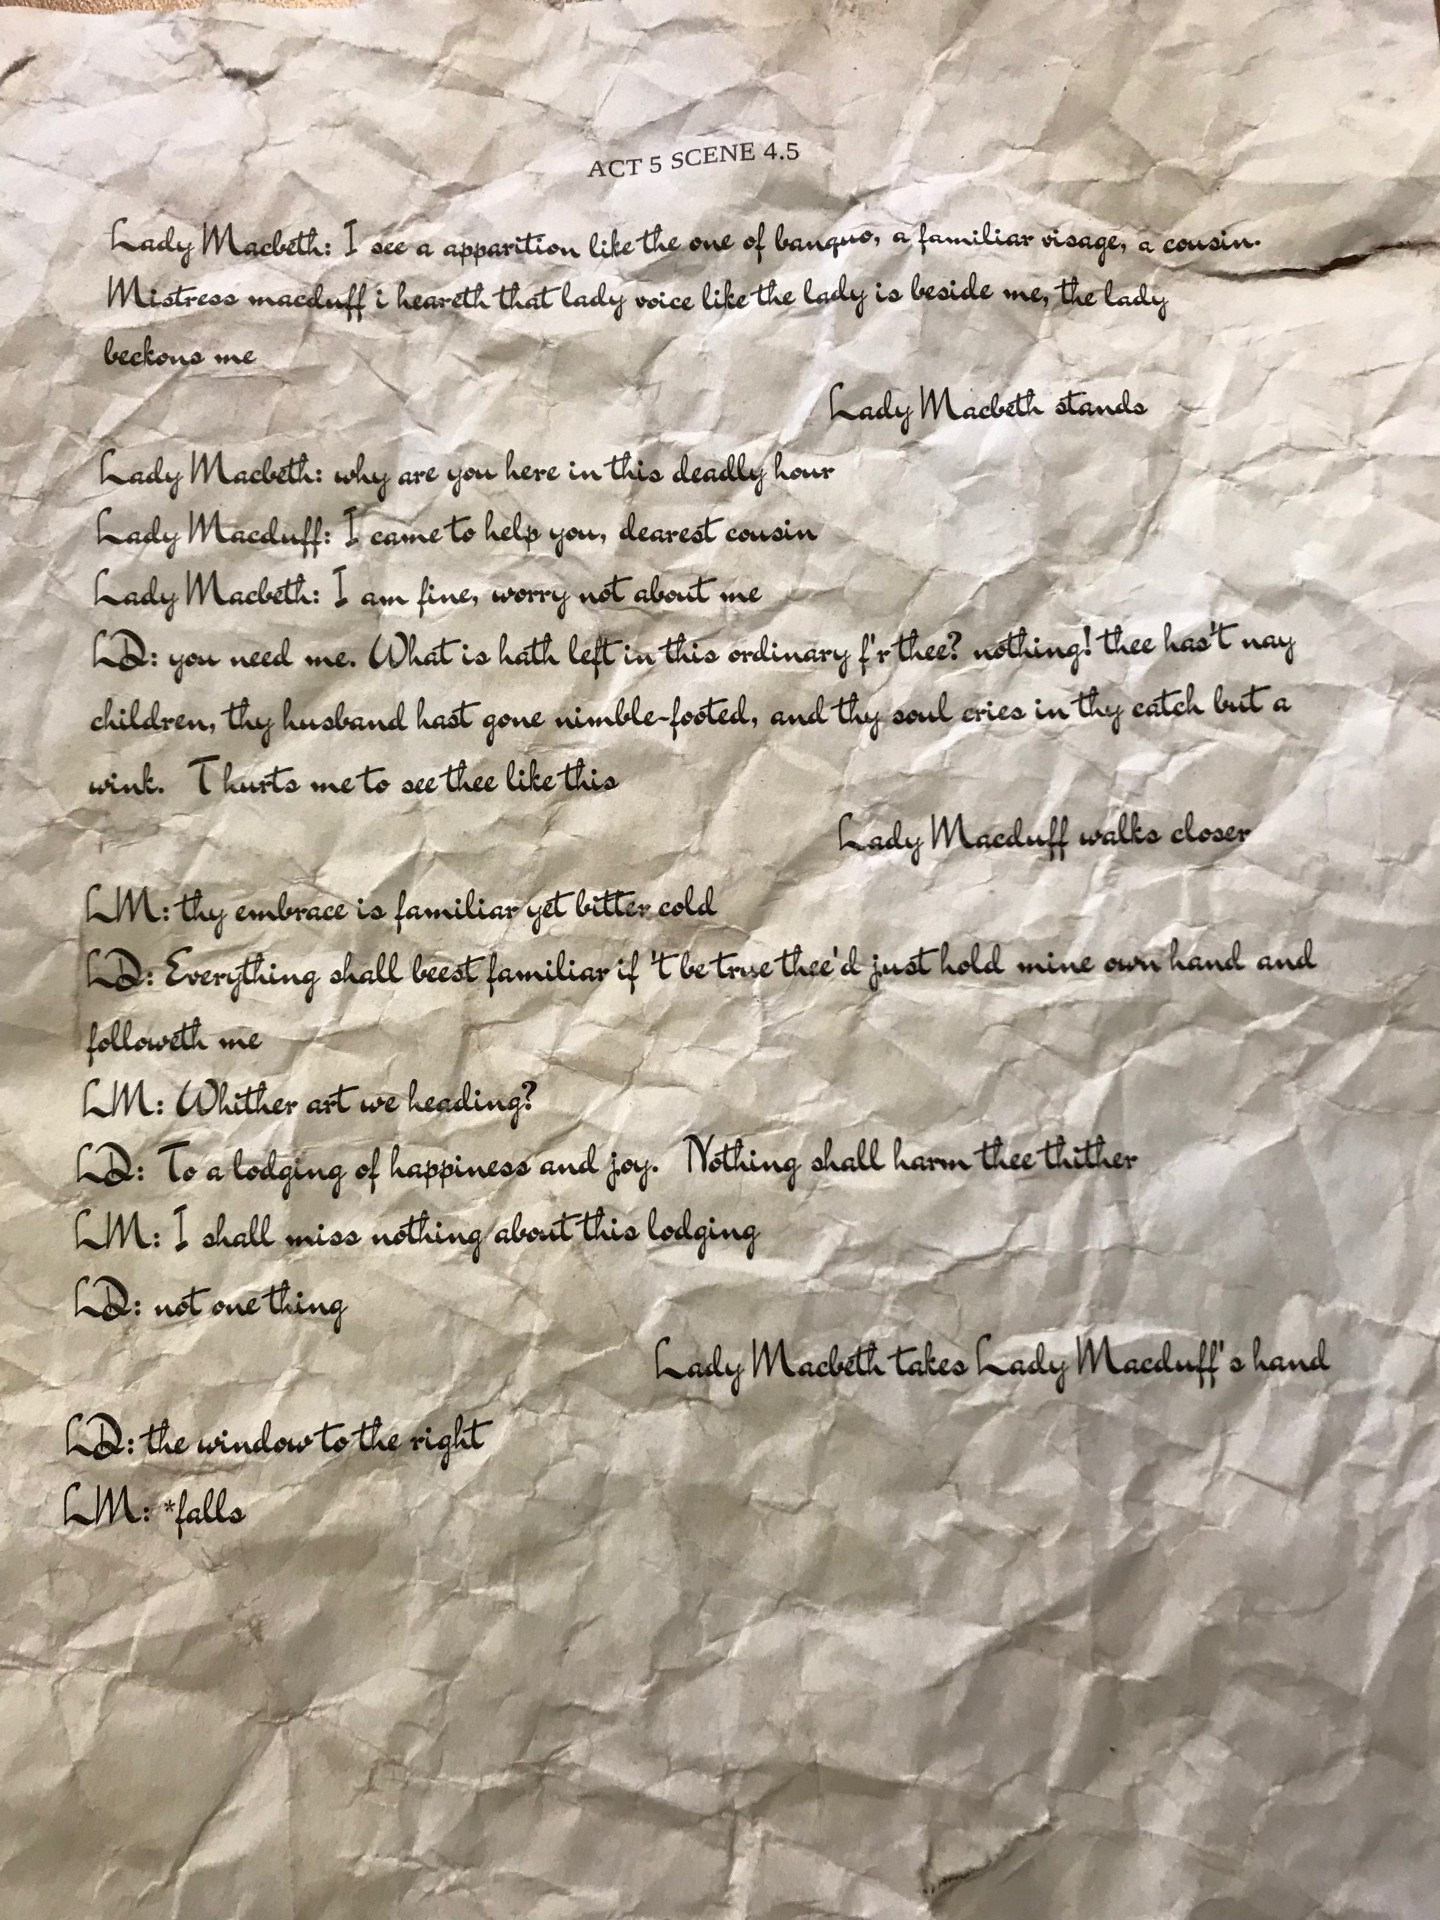 ACT 5 SCENE 4.5
Lady Macbeth: I see a apparition like the one of banquo, a familiar visage, a cousin.
Mistress macduff i heareth that lady voice like the lady is beside me, the lady
beckons me
Lady Macbeth stands
Lady Macbeth: why are you here in this deadly hour
Lady Macduff: I came to help you, dearest cousin
Lady Macbeth: I am fine, worry not about me
LD: you need me. What is hath left in this ordinary f'r thee? nothing! thee has't nay
children, thy husband hast gone nimble-footed, and thy soul cries in thy catch but a
wink. T hurts me to see thee like this
Lady Macduff walks closer
LM: thy embrace is familiar yet bitter cold
LD: Everything shall beest familiar if 't be true thee'd just hold mine own hand and
followeth me
LM: Whither art we heading?
LD: To a lodging of happiness and joy. Nothing shall harm thee thither
LM: I shall miss nothing about this lodging
LD: not one thing
Lady Macbeth takes Lady Macduff's hand
LD: the window to the right
LM: *falls